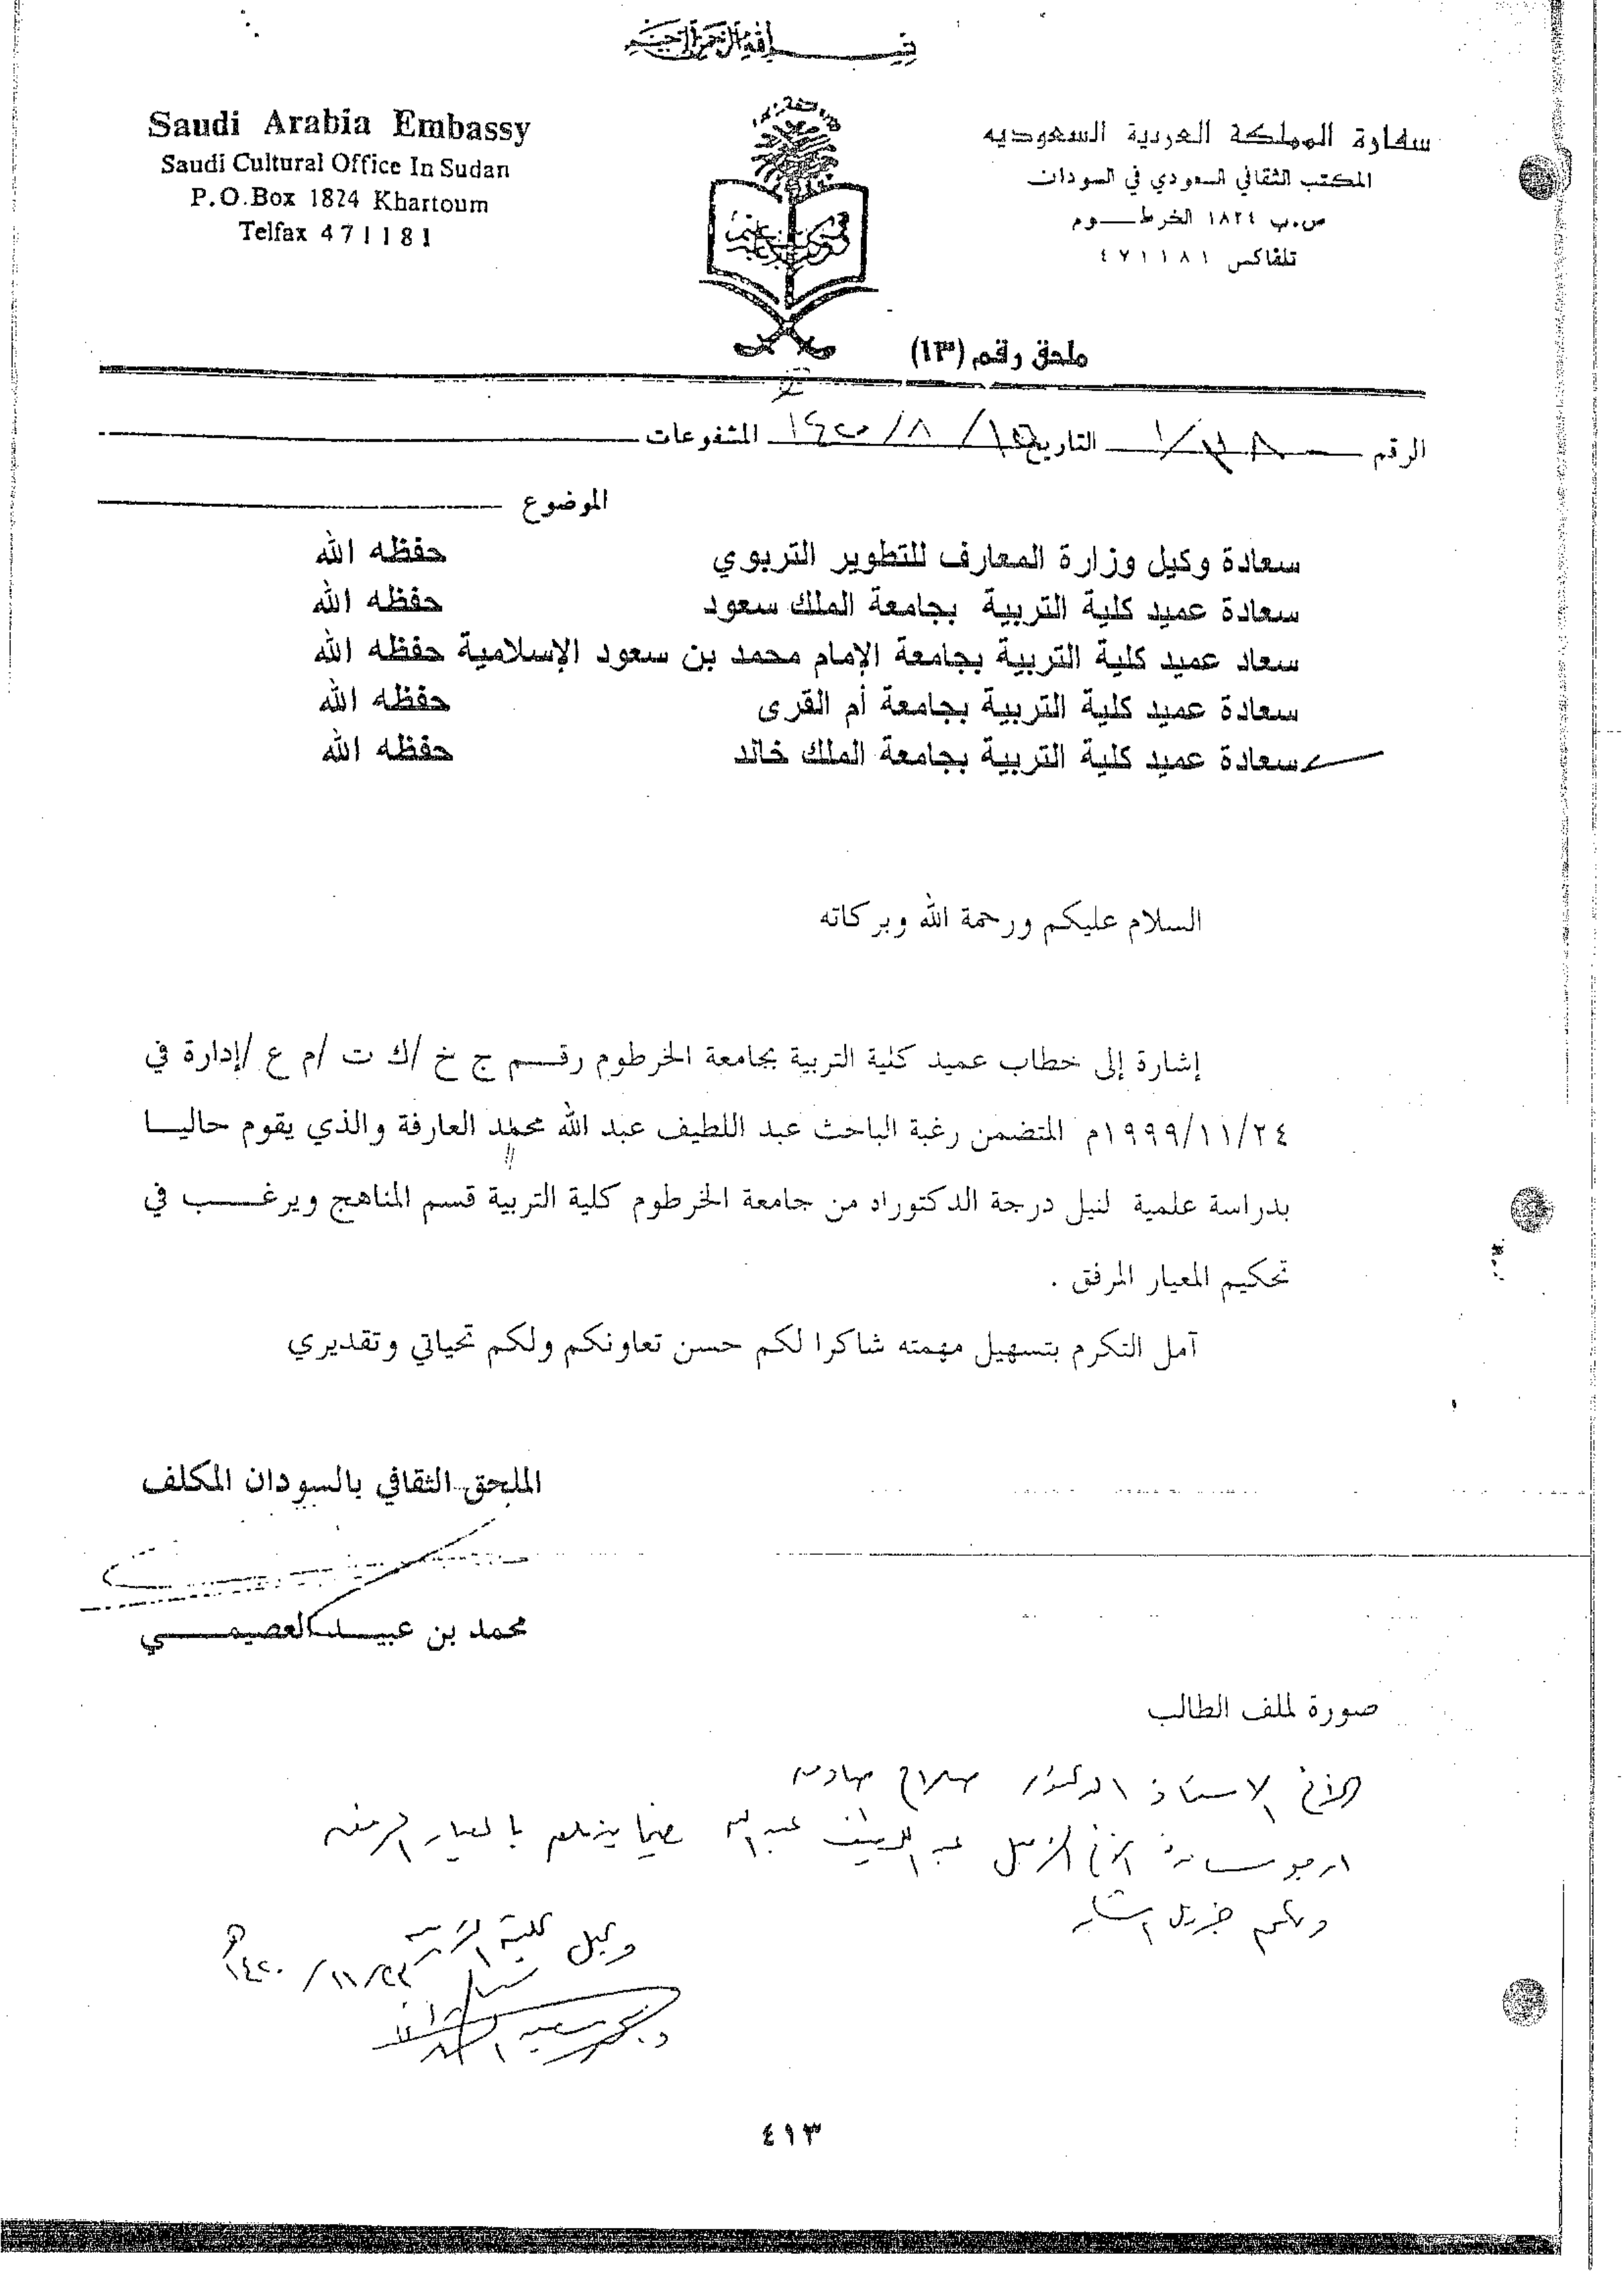 بسم الله الرحمن الرحيم
Saudi Arabia Embassy
Saudi Cultural Office In Sudan
P.O.Box 1824 Khartoum
Telfax 471181
سفارة المملكة العربية السعوديه
المكتب الثقافي السعودي في السودان
ص.ب ١٨٢٤ الخرطــــوم
تلفاكس ٤٧١١٨١
ملحق رقم (١٣)
الرقم ١/٣٨ التاريخ ١٥/٨/١٤٢٠ المشفوعات
الموضوع
سعادة وكيل وزارة المعارف للتطوير التربوي حفظه الله
سعادة عميد كلية التربية بجامعة الملك سعود حفظه الله
سعاد عميد كلية التربية بجامعة الإمام محمد بن سعود الإسلامية حفظه الله
سعادة عميد كلية التربية بجامعة أم القرى حفظه الله
سعادة عميد كلية التربية بجامعة الملك خالد حفظه الله
السلام عليكم ورحمة الله وبركاته
إشارة إلى خطاب عميد كلية التربية بجامعة الخرطوم رقـــم ج خ /ك ت /م ع /إدارة في
١٩٩٩/١١/٢٤م المتضمن رغبة الباحث عبد اللطيف عبد الله محمد العارفة والذي يقوم حاليـــا
بدراسة علمية لنيل درجة الدكتوراه من جامعة الخرطوم كلية التربية قسم المناهج ويرغــــب في
تحكيم المعيار المرفق .
آمل التكرم بتسهيل مهمته شاكرا لكم حسن تعاونكم ولكم تحياتي وتقديري
الملحق الثقافي بالسودان المكلف
محمد بن عبيــد العصيمــــي
صورة لملف الطالب
الأخ الاستاذ الدكتور صلاح صادق
ارجو مساعدة الأخ الزميل عبد اللطيف عبد الله فيما يتعلق بالمعيار المرفق
ولكم جزيل الشكر
وكيل كلية التربية
١٤٢٠/١١/٢٣هـ
٤١٣